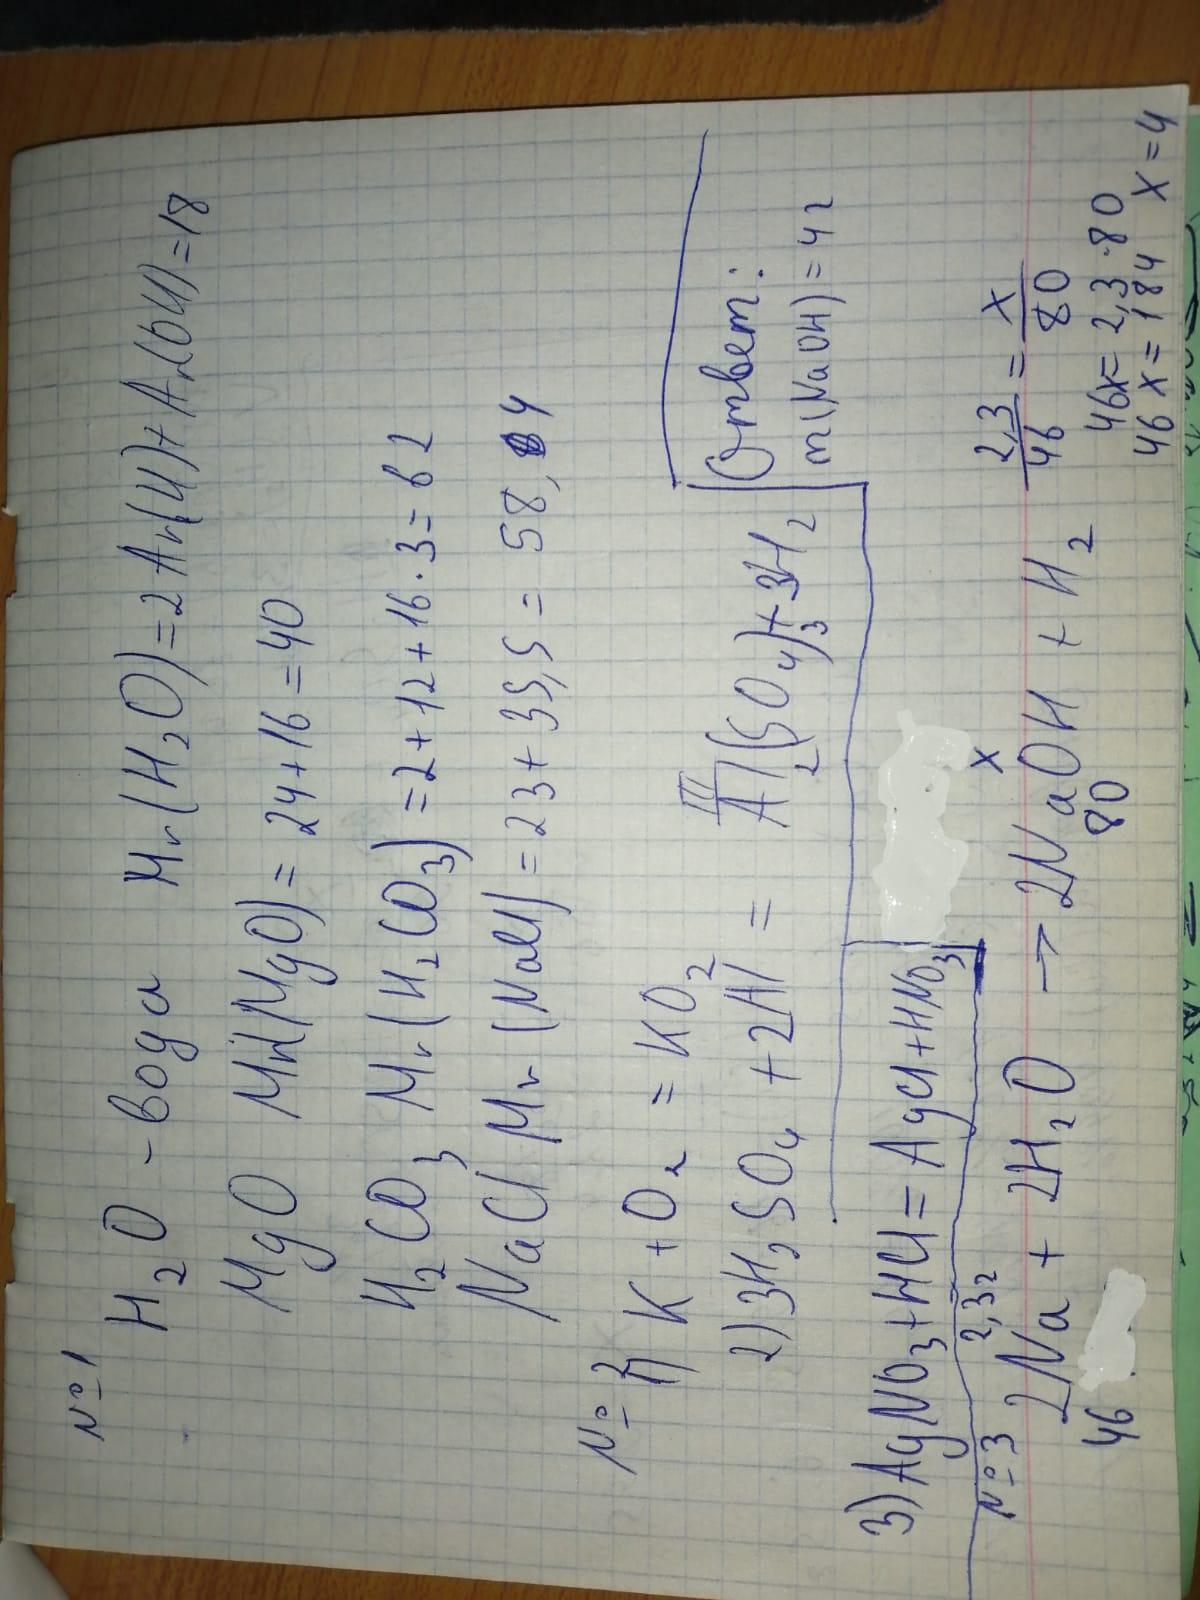 № 1
H₂O - вода Mr(H₂O)=2Ar(H)+Ar(OH)=18
MgO Mr(MgO)= 24+16=40
H₂CO₃ Mr(H₂CO₃)=2+12+16·3=62
NaCl Mr(NaCl)=23+35,5= 58,4
№ 2
1) K + O₂ = KO₂
2) 3H₂SO₄ +2Al = Al₂(SO₄)₃+3H₂
III
Ответ:
m(NaOH)=4г
3) AgNO₃+HCl=AgCl+HNO₃
№ 3
2,3г x
2Na + 2H₂O → 2NaOH + H₂
46 80
2,3/46 = x/80
46x=2,3·80
46x=184 x=4